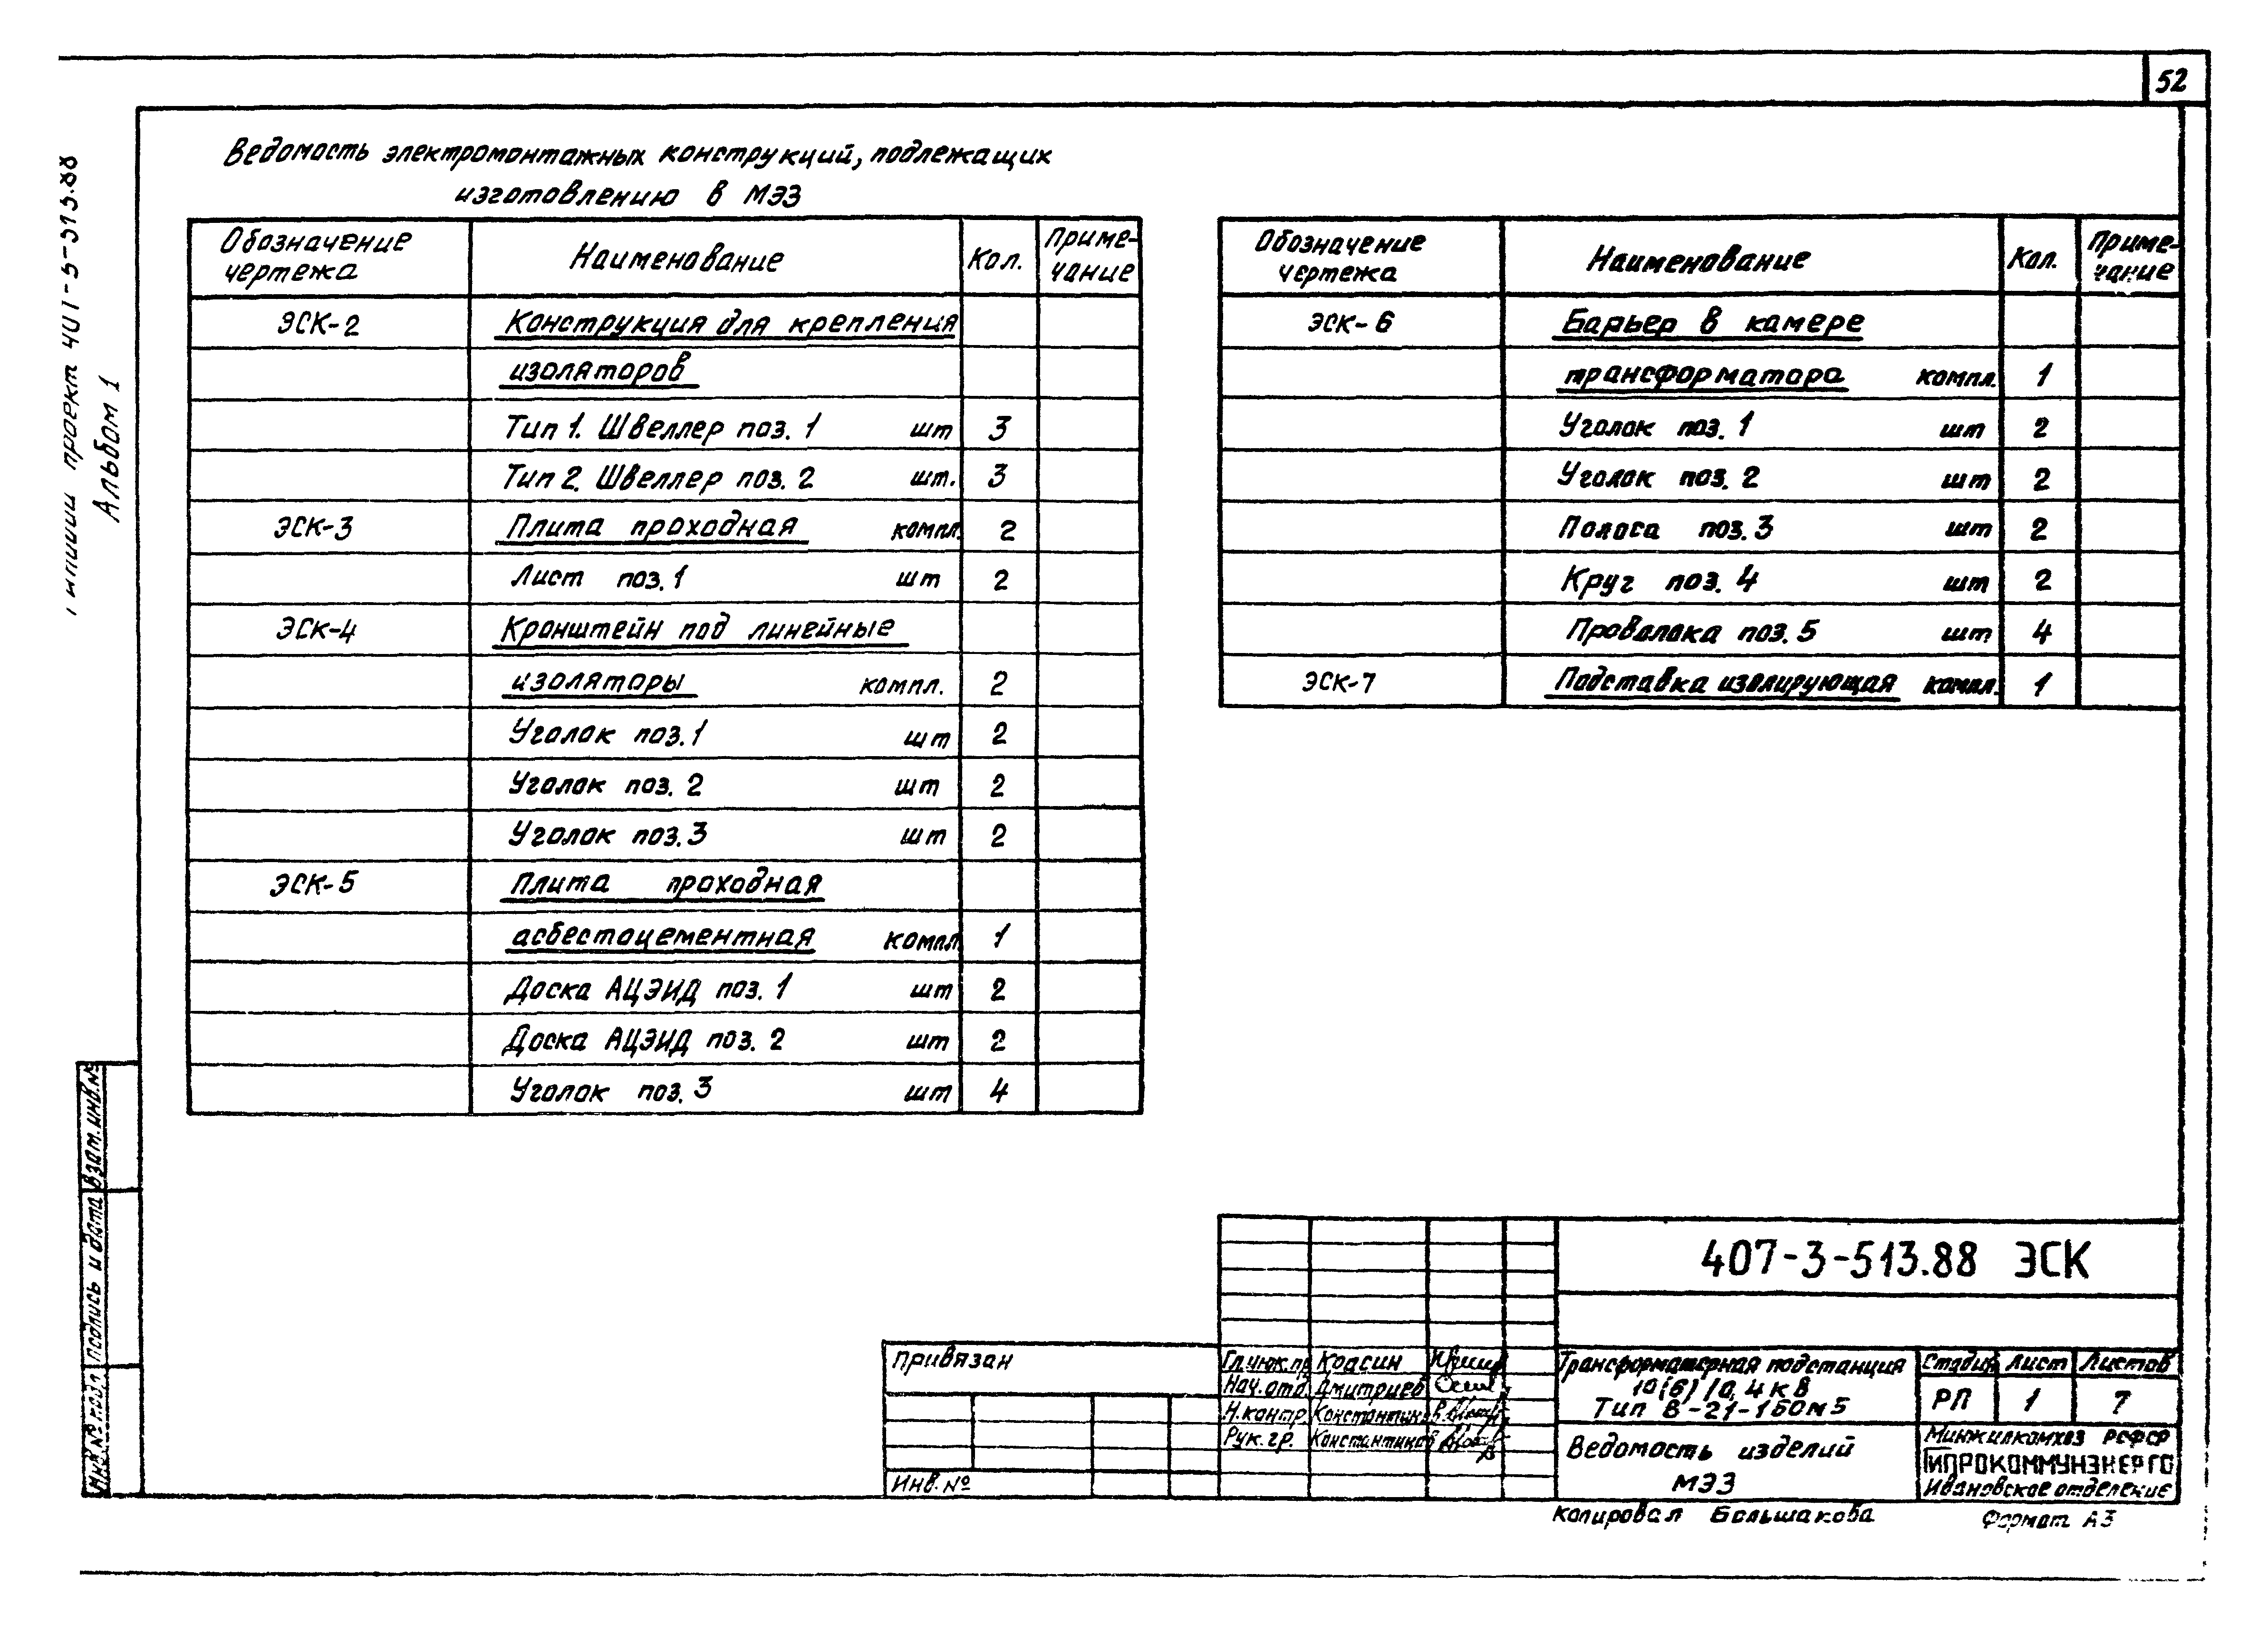 52
Типовой проект 407-3-513.88
Альбом 1
Ведомость электромонтажных конструкций, подлежащих
изготовлению в МЭЗ
Обозначение чертежа Наименование Кол. Приме-чание
ЭСК-2 Конструкция для крепления
изоляторов
Тип 1. Швеллер поз. 1 шт 3
Тип 2. Швеллер поз. 2 шт. 3
ЭСК-3 Плита проходная компл. 2
Лист поз. 1 шт 2
ЭСК-4 Кронштейн под линейные
изоляторы компл. 2
Уголок поз. 1 шт 2
Уголок поз. 2 шт 2
Уголок поз. 3 шт 2
ЭСК-5 Плита проходная
асбестоцементная компл 1
Доска АЦЭИД поз. 1 шт 2
Доска АЦЭИД поз. 2 шт 2
Уголок поз. 3 шт 4
Обозначение чертежа Наименование Кол. Приме-чание
ЭСК-6 Барьер в камере
трансформатора компл. 1
Уголок поз. 1 шт 2
Уголок поз. 2 шт 2
Полоса поз. 3 шт 2
Круг поз. 4 шт 2
Проволока поз. 5 шт 4
ЭСК-7 Подставка изолирующая компл. 1
Взам. инв. №
Подпись и дата
Инв. № подл
407-3-513.88 ЭСК
Привязан
Инв. №
Гл. инж. пр Красин
Нач. отд. Дмитриев
Н. контр. Константинов
Рук. гр. Константинов
Трансформаторная подстанция
10(6)/0,4 кв
Тип В-21-1БОМ5
Стадия Лист Листов
РП 1 7
Ведомость изделий
МЭЗ
Минжилкомхоз РСФСР
ГИПРОКОММУНЭНЕРГО
Ивановское отделение
Копировал Большакова
Формат А3